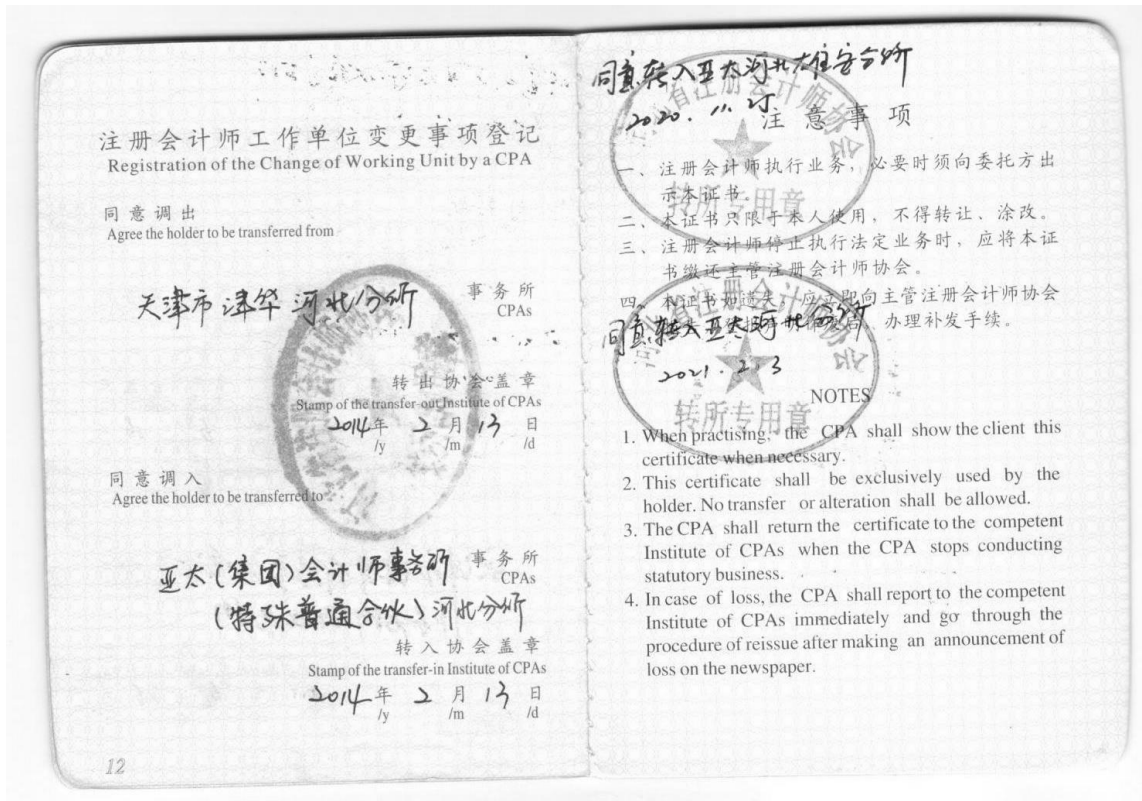 注册会计师工作单位变更事项登记
Registration of the Change of Working Unit by a CPA
同意调出
Agree the holder to be transferred from
天津市津华河北分所
事务所
CPAs
转出协会盖章
Stamp of the transfer-out Institute of CPAs
2014年 2月 13日
/y /m /d
同意调入
Agree the holder to be transferred to
亚太(集团)会计师事务所
事务所
CPAs
(特殊普通合伙)河北分所
转入协会盖章
Stamp of the transfer-in Institute of CPAs
2014年 2月 13日
/y /m /d
12
同意转入亚太河北雄安分所
2020.11.25
省注册会计师协会
转所专用章
注意事项
一、注册会计师执行业务,必要时须向委托方出
示本证书。
二、本证书只限于本人使用,不得转让、涂改。
三、注册会计师停止执行法定业务时,应将本证
书缴还主管注册会计师协会。
四、本证书如遗失,应立即向主管注册会计师协会
办理补发手续。
同意转入亚太河北分所
2021.2.3
省注册会计师协会
转所专用章
NOTES
1. When practising, the CPA shall show the client this
certificate when necessary.
2. This certificate shall be exclusively used by the
holder. No transfer or alteration shall be allowed.
3. The CPA shall return the certificate to the competent
Institute of CPAs when the CPA stops conducting
statutory business.
4. In case of loss, the CPA shall report to the competent
Institute of CPAs immediately and go through the
procedure of reissue after making an announcement of
loss on the newspaper.